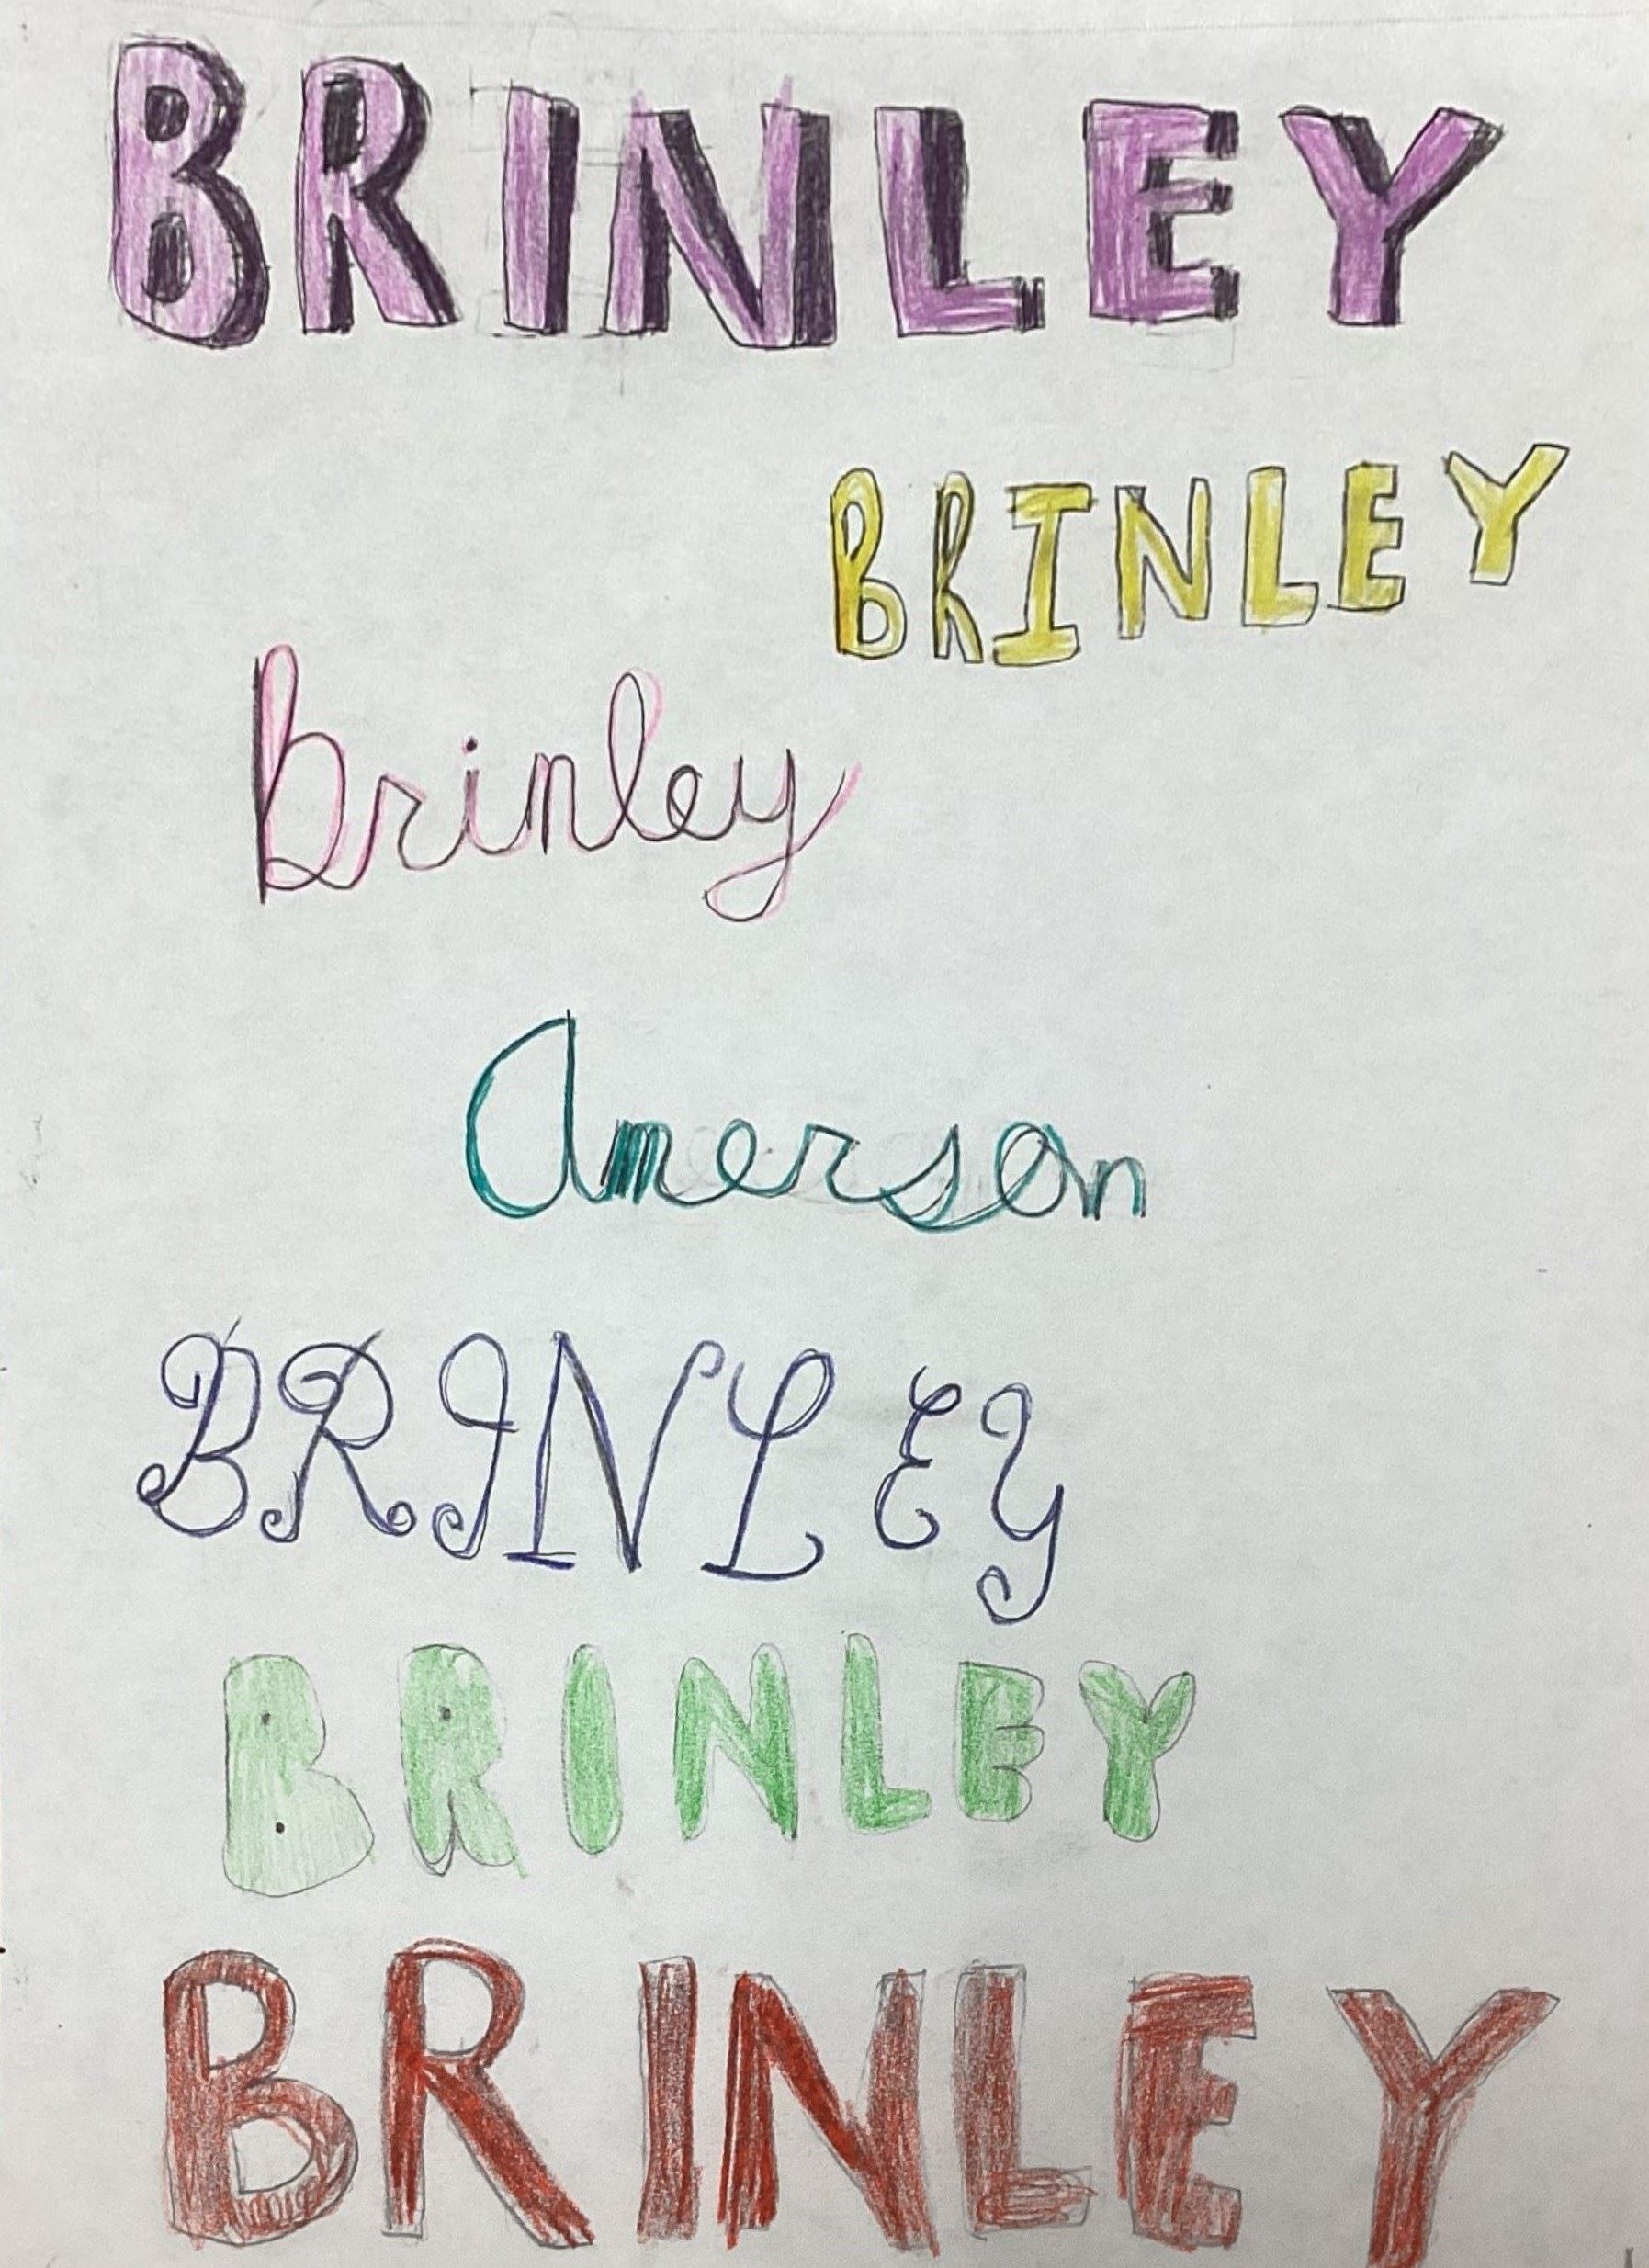 BRINLEY
BRINLEY
Brinley
Amerson
BRINLEY
BRINLEY
BRINLEY